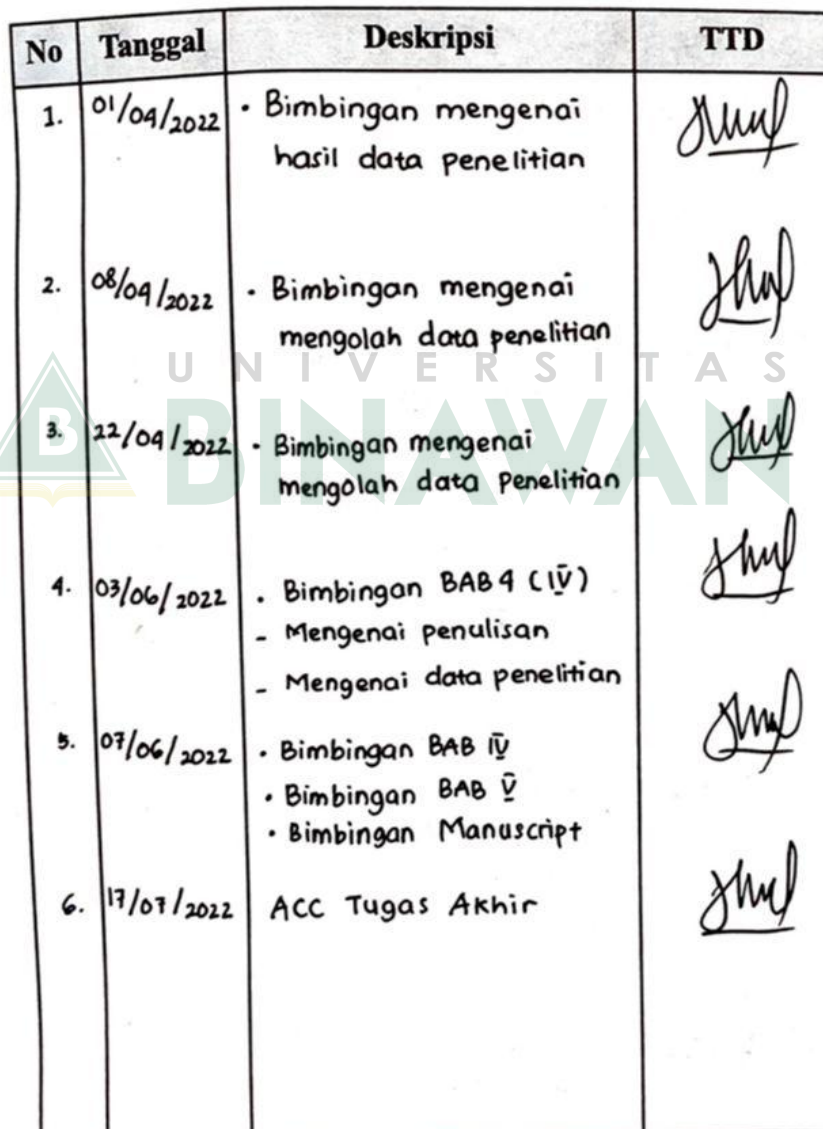 No Tanggal Deskripsi TTD
1. 01/04/2022 • Bimbingan mengenai
hasil data penelitian
2. 08/04/2022 • Bimbingan mengenai
mengolah data penelitian
UNIVERSITAS
B BINAWAN
3. 22/04/2022 • Bimbingan mengenai
mengolah data penelitian
4. 03/06/2022 • Bimbingan BAB 4 (IV)
- Mengenai penulisan
- Mengenai data penelitian
5. 07/06/2022 • Bimbingan BAB IV
• Bimbingan BAB V
• Bimbingan Manuscript
6. 17/07/2022 ACC Tugas Akhir